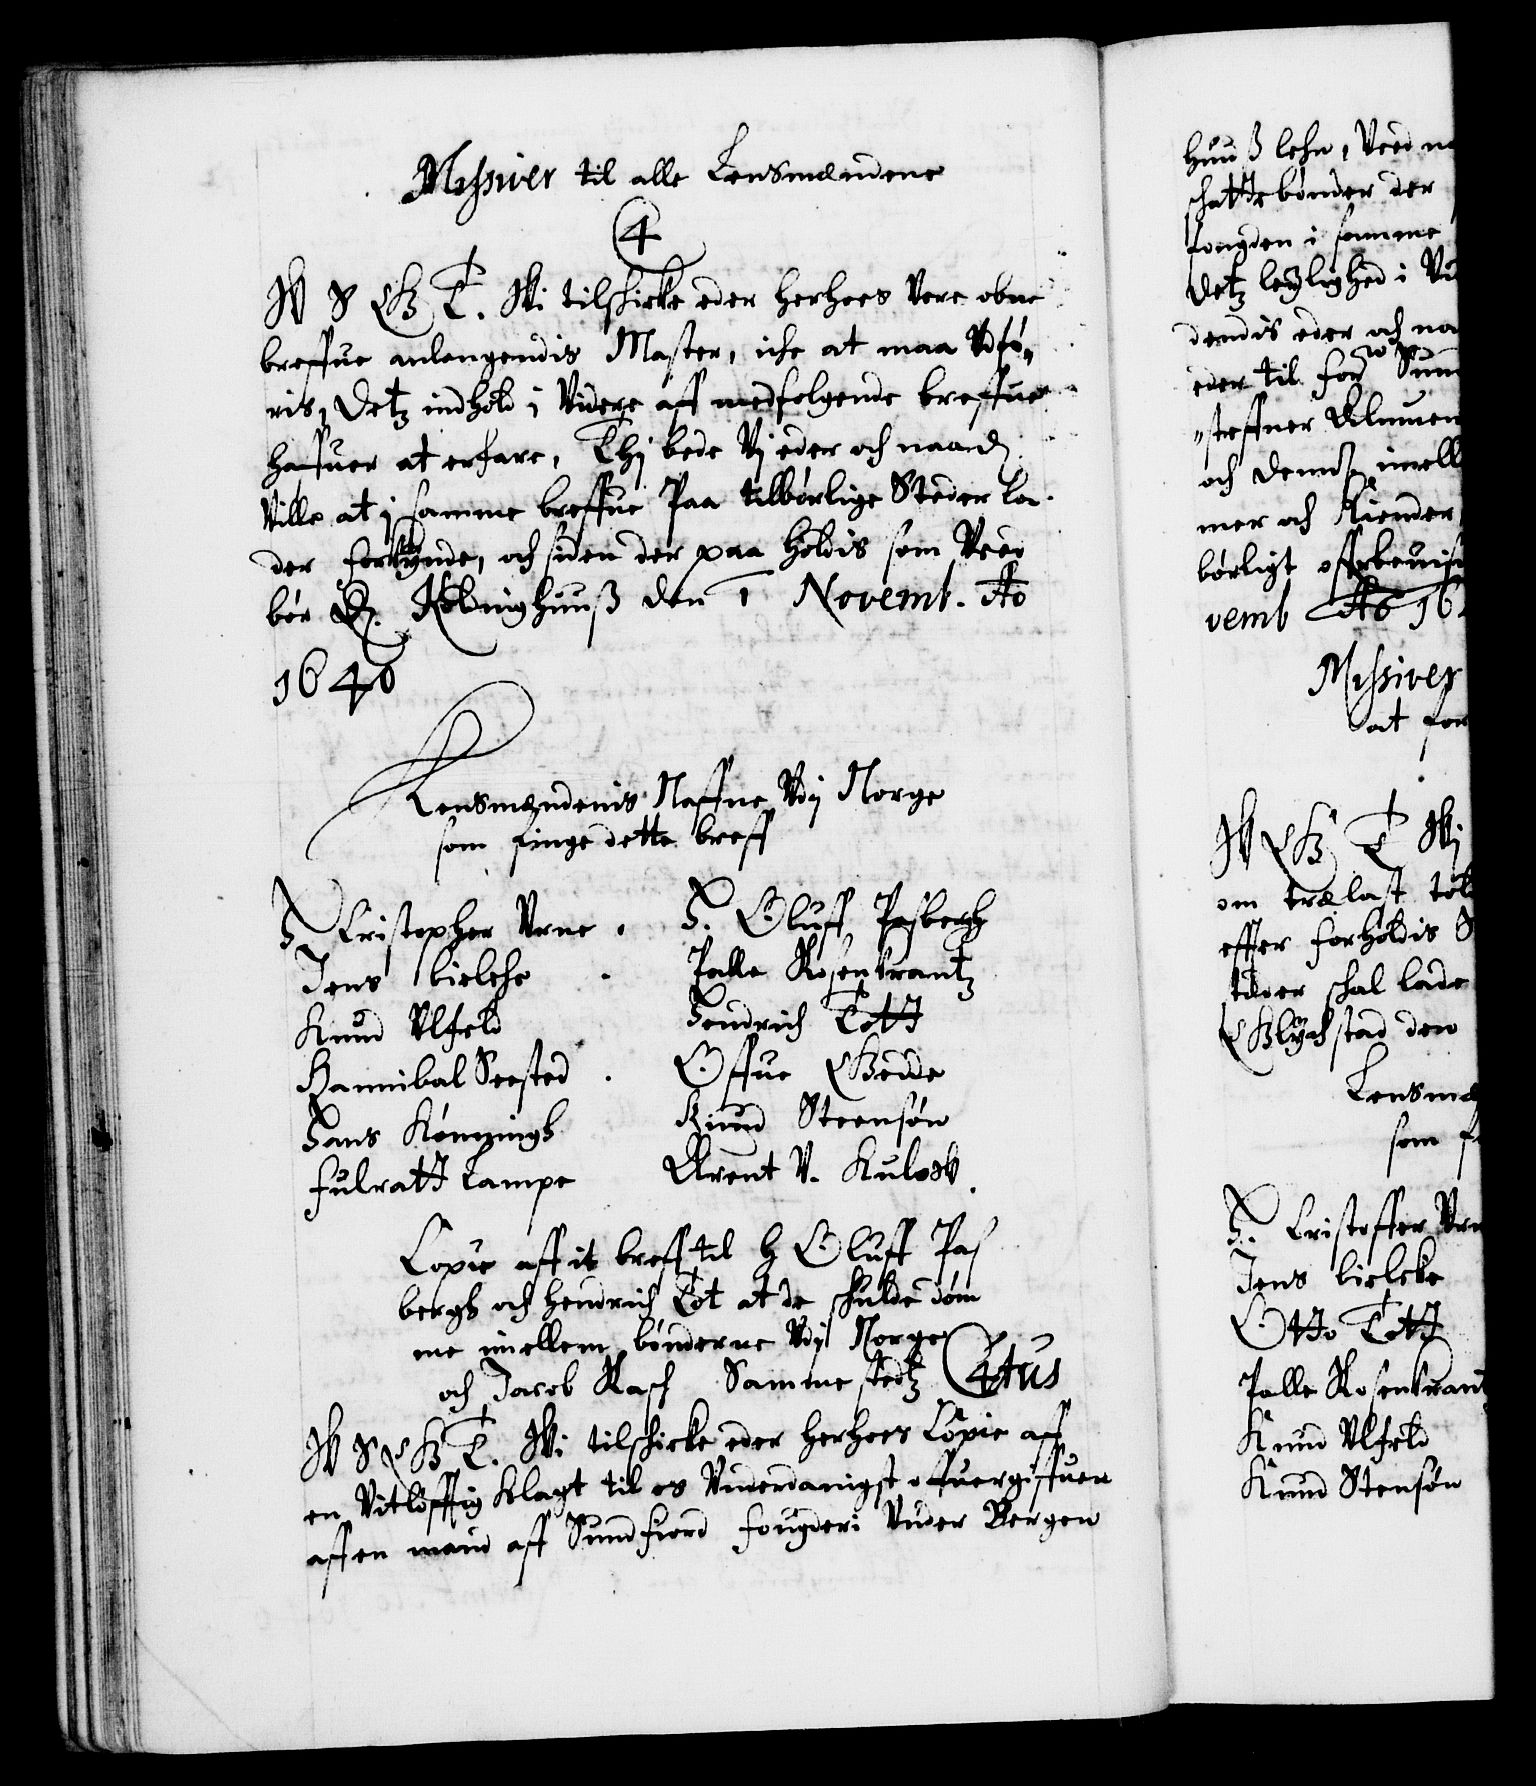 Missiver til alle Lensmændene
4
W S G T. Wi tilschicke eder herhoes Vore obne
breffue anlangendis Master, iche at maa Vdfø„
ris, Detz indhold i Videre aff medfølgende breffue
haffuer at erfare, Thj bede Vj eder och naadl
Ville at j samme breffue Paa tilbørlige Steder la„
der forkynde, och siden der paa holdis som Veed
bør D. Koldinghuuß den 1 Novemb. Ao
1640
Lensmændenis Naffne Vdj Norge
som finge dette breff
H. Cristopher Vrne . H. Oluff Pasbergh
Jens bielche . Palle Rosenkrantz
Knud Vlfeld Hendrich Tott
Hannibal Seested . Offue Gedde
Hans Kønningh Knud Steensøn
fulratt Lampe Arent V. Kulow.
Copie aff it breff til h Oluff Pas
bergh och Hendrich Tot at de schulde døm
me imellem bønderne Vdj Norge
och Jacob Rasch Samme stedtz
W S G T. Wi tilschicke eder herhoes Copie aff
en Vitløfftig klagt til os Vnderdanigst offuergiffuen
aff en mand aff Sundfiord fougderi Vnder Bergen
huuß lehn, Veed
schattebønder der
fougden i samme
detz leylighed i
dendis eder och
eder til for
steffner
och dennem imell
mer och
børligt
vemb Ao 16
Missiver
at for
W G T Wj
om trælast told
effter forholdis
tider schal lade
Glychstad den
Lensmæ
som f
H. Cristoffer Vrn
Jens bielcke
Otto Tott
Palle Rosenkrant
Knud Vlfeld
Knud Stensøn